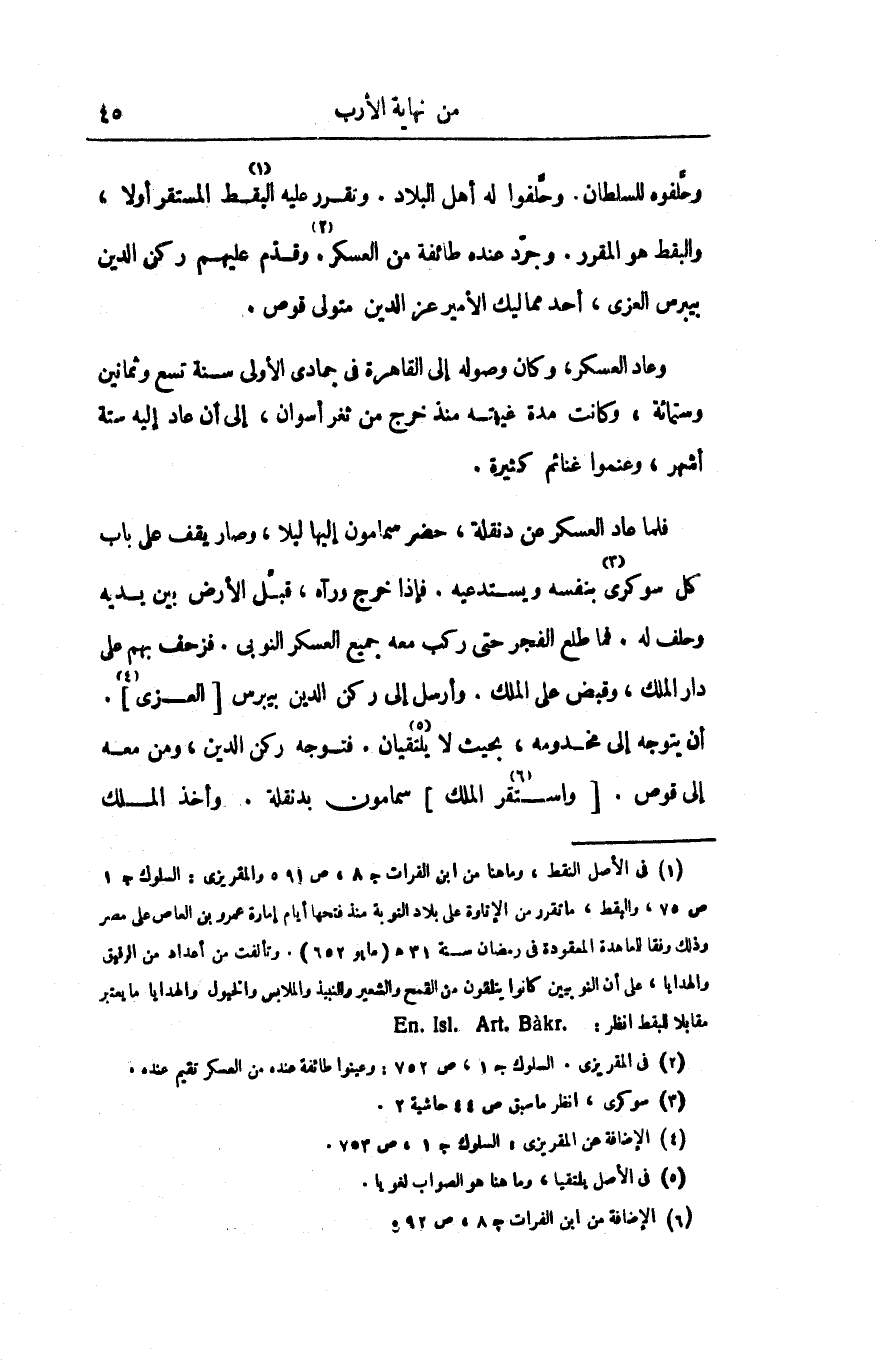 من نهاية الأرب ٤٥
وحلَّفوه للسلطان. وحلَّفوا له أهل البلاد. وتقرر عليه البقط (١) المستقر أولا ،
والبقط هو المقرر. وجرّد عنده طائفة من العسكر (٢). وقدّم عليهم ركن الدين
بيبرس العزى ، أحد مماليك الأمير عز الدين متولى قوص .
وعاد العسكر، وكان وصوله إلى القاهرة فى جمادى الأولى سنة تسع وثمانين
وستمائة ، وكانت مدة غيبته منذ خرج من ثغر أسوان ، إلى أن عاد إليه ستة
أشهر ، وعنموا غنائم كثيرة .
فلما عاد العسكر عن دنقلة ، حضر سمامون إليها ليلا ، وصار يقف على باب
كل سوكرى (٣) بنفسه ويستدعيه . فإذا خرج ورآه ، قبّل الأرض بين يديه
وحلف له . فما طلع الفجر حتى ركب معه جميع العسكر النوبى . فزحف بهم على
دار الملك ، وقبض على الملك . وأرسل إلى ركن الدين بيبرس [ العزى (٤) ] .
أن يتوجه إلى مخدومه ، بحيث لا يلتقيان (٥) . فتوجه ركن الدين ، ومن معه
إلى قوص . [ واستقر الملك (٦) ] سمامون بدنقلة . وأخذ الملك
(١) فى الأصل النقط ، وماهنا من ابن الفرات ج ٨ ، ص ٩١ ٥ والمقريزى : السلوك ج ١
ص ٧٥ ، والبقط ، ماتقرر من الإتاوة على بلاد النوبة منذ فتحها أيام إمارة عمرو بن العاص على مصر
وذلك وفقا للماهدة المعقودة فى رمضان سنة ٣١ هـ (مايو ٦٥٢) . وتألفت من أعداد من الرقيق
والهدايا ، على أن النوبيين كانوا يتلقون من القمح والشعير والنبيذ والملابس والخيول والهدايا ما يعتبر
مقابلا للبقط انظر : En. Isl. Art. Bàkr.
(٢) فى المقريزى . السلوك ج ١ ، ص ٧٥٢ : وعينوا طائفة عنده من العسكر تقيم عنده .
(٣) سوكرى ، انظر ماسبق ص ٤٤ حاشية ٢ .
(٤) الإضافة عن المقريزى : السلوك ج ١ ، ص ٧٥٣ .
(٥) فى الأصل يلتقيا ، وما هنا هو الصواب لغويا .
(٦) الإضافة من ابن الفرات ج ٨ ، ص ٩٢ ٥